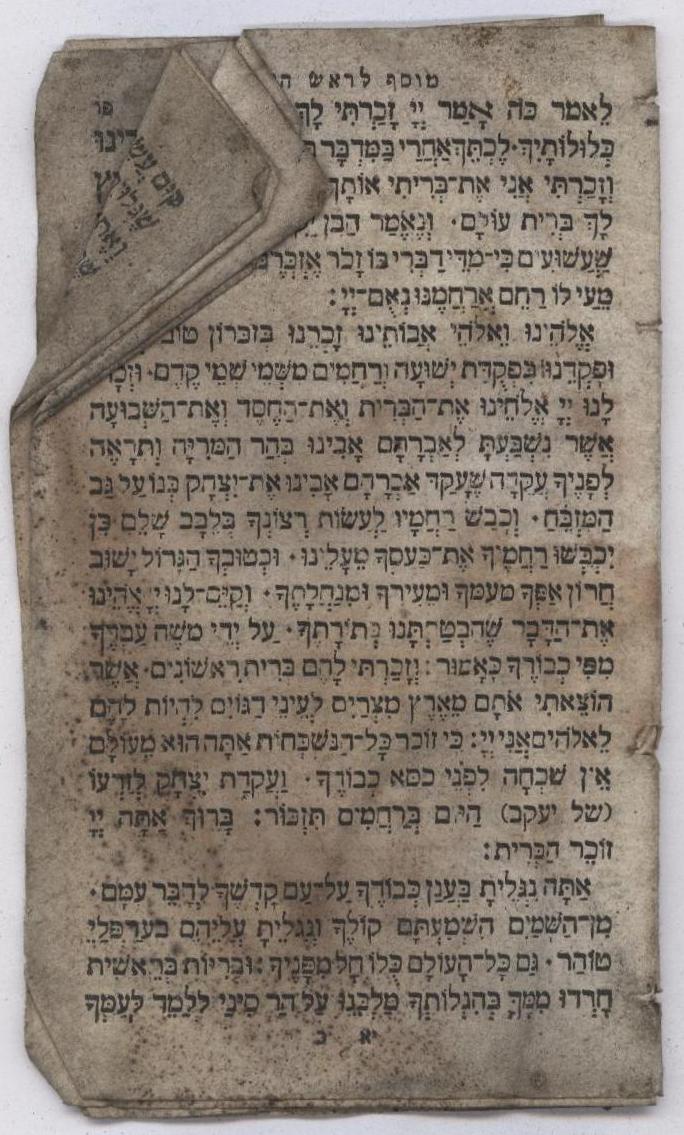 מוסף לראש
לֵאמֹר כֹּה אָמַר יְיָ זָכַרְתִּי לָךְ
כְּלוּלוֹתָיִךְ· לֶכְתֵּךְ אַחֲרַי בַּמִּדְבָּר
וְזָכַרְתִּי אֲנִי אֶת־בְּרִיתִי אוֹתָךְ
לָךְ בְּרִית עוֹלָם· וְנֶאֱמַר הֲבֵן
שַׁעֲשׁוּעִים כִּי־מִדֵּי דַבְּרִי בּוֹ זָכֹר אֶזְכְּרֶנּוּ
מֵעַי לוֹ רַחֵם אֲרַחֲמֶנּוּ נְאֻם־יְיָ:
אֱלֹהֵינוּ וֵאלֹהֵי אֲבוֹתֵינוּ זָכְרֵנוּ בְּזִכְרוֹן טוֹב
וּפָקְדֵנוּ בִּפְקֻדַּת יְשׁוּעָה וְרַחֲמִים מִשְּׁמֵי שְׁמֵי קֶדֶם· וּזְכָר
לָנוּ יְיָ אֱלֹהֵינוּ אֶת־הַבְּרִית וְאֶת־הַחֶסֶד וְאֶת־הַשְּׁבוּעָה
אֲשֶׁר נִשְׁבַּעְתָּ לְאַבְרָהָם אָבִינוּ בְּהַר הַמֹּרִיָּה וְתֵרָאֶה
לְפָנֶיךָ עֲקֵדָה שֶׁעָקַד אַבְרָהָם אָבִינוּ אֶת־יִצְחָק בְּנוֹ עַל גַּב
הַמִּזְבֵּחַ· וְכָבַשׁ רַחֲמָיו לַעֲשׂוֹת רְצוֹנְךָ בְּלֵבָב שָׁלֵם כֵּן
יִכְבְּשׁוּ רַחֲמֶיךָ אֶת־כַּעַסְךָ מֵעָלֵינוּ· וּבְטוּבְךָ הַגָּדוֹל יָשׁוּב
חֲרוֹן אַפְּךָ מֵעַמְּךָ וּמֵעִירְךָ וּמִנַּחֲלָתֶךָ· וְקַיֶּם־לָנוּ יְיָ אֱלֹהֵינוּ
אֶת־הַדָּבָר שֶׁהִבְטַחְתָּנוּ בְּתוֹרָתֶךָ· עַל יְדֵי מֹשֶׁה עַבְדֶּךָ
מִפִּי כְבוֹדֶךָ כָּאָמוּר: וְזָכַרְתִּי לָהֶם בְּרִית רִאשׁוֹנִים· אֲשֶׁר
הוֹצֵאתִי אֹתָם מֵאֶרֶץ מִצְרַיִם לְעֵינֵי הַגּוֹיִם לִהְיוֹת לָהֶם
לֵאלֹהִים אֲנִי יְיָ: כִּי זוֹכֵר כָּל־הַנִּשְׁכָּחוֹת אַתָּה הוּא מֵעוֹלָם
אֵין שִׁכְחָה לִפְנֵי כִסֵּא כְבוֹדֶךָ· וַעֲקֵדַת יִצְחָק לְזַרְעוֹ
(של יעקב) הַיּוֹם בְּרַחֲמִים תִּזְכּוֹר: בָּרוּךְ אַתָּה יְיָ
זוֹכֵר הַבְּרִית:
אַתָּה נִגְלֵיתָ בַּעֲנַן כְּבוֹדֶךָ עַל־עַם קָדְשְׁךָ לְדַבֵּר עִמָּם·
מִן־הַשָּׁמַיִם הִשְׁמַעְתָּם קוֹלֶךָ וְנִגְלֵיתָ עֲלֵיהֶם בְּעַרְפְּלֵי
טוֹהַר· גַּם כָּל־הָעוֹלָם כֻּלּוֹ חָל מִפָּנֶיךָ: וּבְרִיּוֹת בְּרֵאשִׁית
חָרְדוּ מִמֶּךָּ בְּהִגָּלוֹתְךָ מַלְכֵּנוּ עַל הַר סִינַי לְלַמֵּד לְעַמְּךָ
יא ב